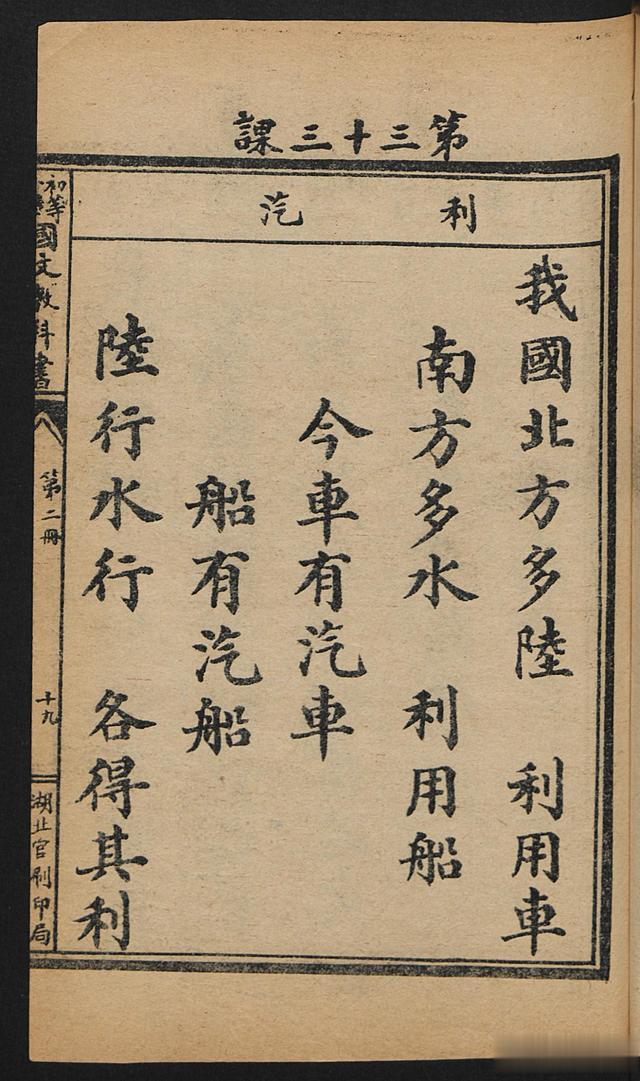 第三十三課
利 汽
我國北方多陸 利用車
南方多水 利用船
今車有汽車
船有汽船
陸行水行 各得其利
初等
國文教科書
第二冊
十九
湖北官刷印局